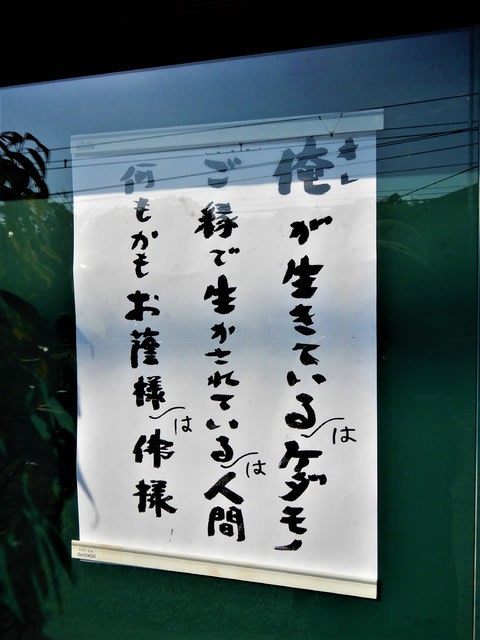 俺が生きているはケダモノ
ご縁で生かされているは人間
何もかもお蔭様は佛様